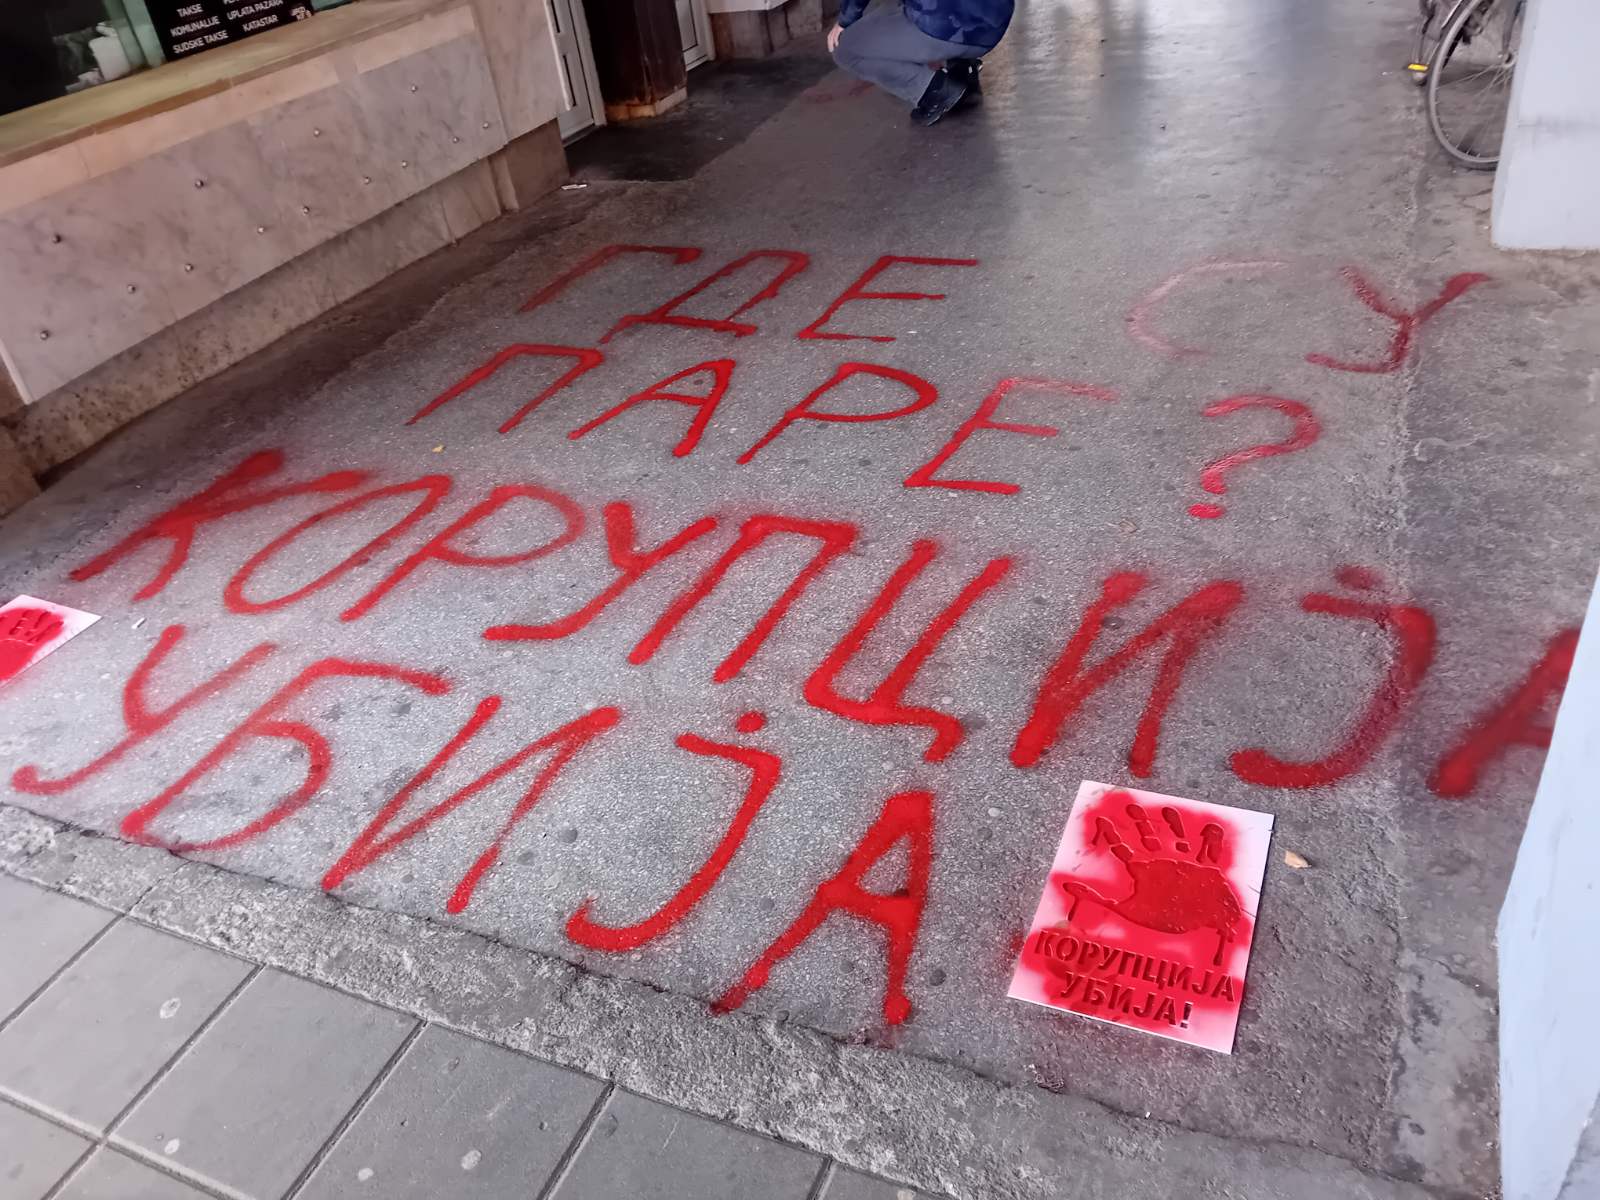 TAKSE
KOMUNALIJE UPLATA PAZARA
SUDSKE TAKSE KATASTAR
ГДЕ СУ
ПАРЕ?
КОРУПЦИЈА
УБИЈА
КОРУПЦИЈА
УБИЈА!